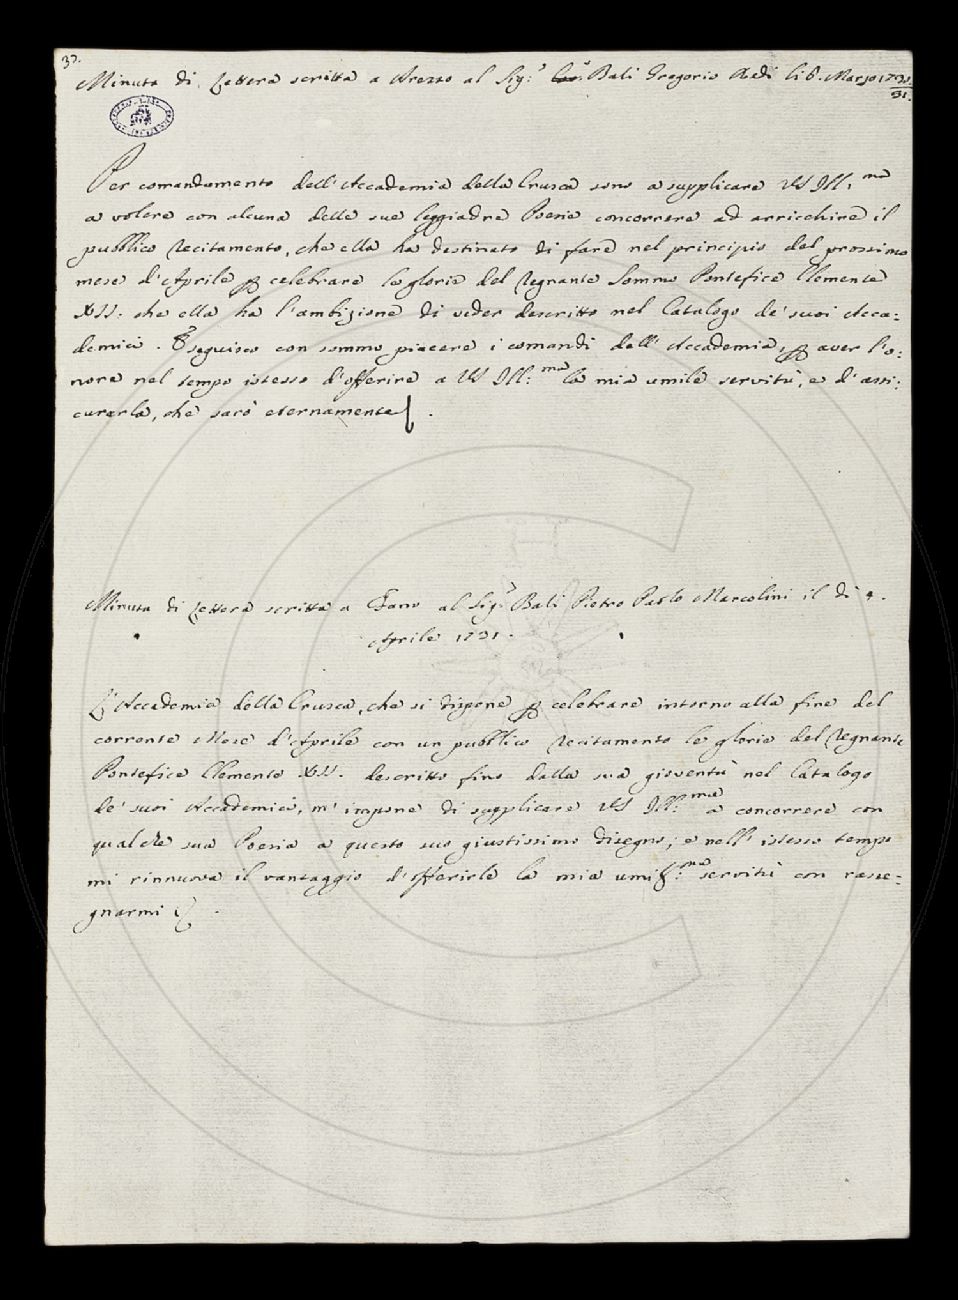 37.
Minuta di Lettera scritta a Arezzo al Sig:r Balì Gregorio Redi li 6. Marzo 1730/31.
Per comandamento dell'Accademia della Crusca sono a supplicare VS Ill:ma
a volere con alcuna delle sue leggiadre Poesie concorrere ad arricchire il
pubblico recitamento, che ella ha destinato di fare nel principio del prossimo
mese d'Aprile p celebrare le glorie del Regnante Sommo Pontefice Clemente
XII. che ella ha l'ambizione di veder descritto nel Catalogo de' suoi Acca:
demici. Eseguisco con sommo piacere i comandi dell'Accademia, p aver l'o:
nore nel tempo istesso d'offerire a VS Ill:ma la mia umile servitù, e d'assi:
curarla, che sarò eternamente.
Minuta di Lettera scritta a Fano al Sig:r Balì Pietro Paolo Marcolini il dì 4.
Aprile 1731.
L'Accademia della Crusca, che si dispone p celebrare intorno alla fine del
corrente Mese d'Aprile con un pubblico recitamento le glorie del Regnante
Pontefice Clemente XII. descritto fino dalla sua gioventù nel Catalogo
de' suoi Accademici, m'impone di supplicare VS Ill:ma a concorrere con
qualche sua Poesia a questo suo giustissimo disegno; e nell'istesso tempo
mi rinnuova il vantaggio d'offerirle la mia umil:ma servitù con rasse:
gnarmi